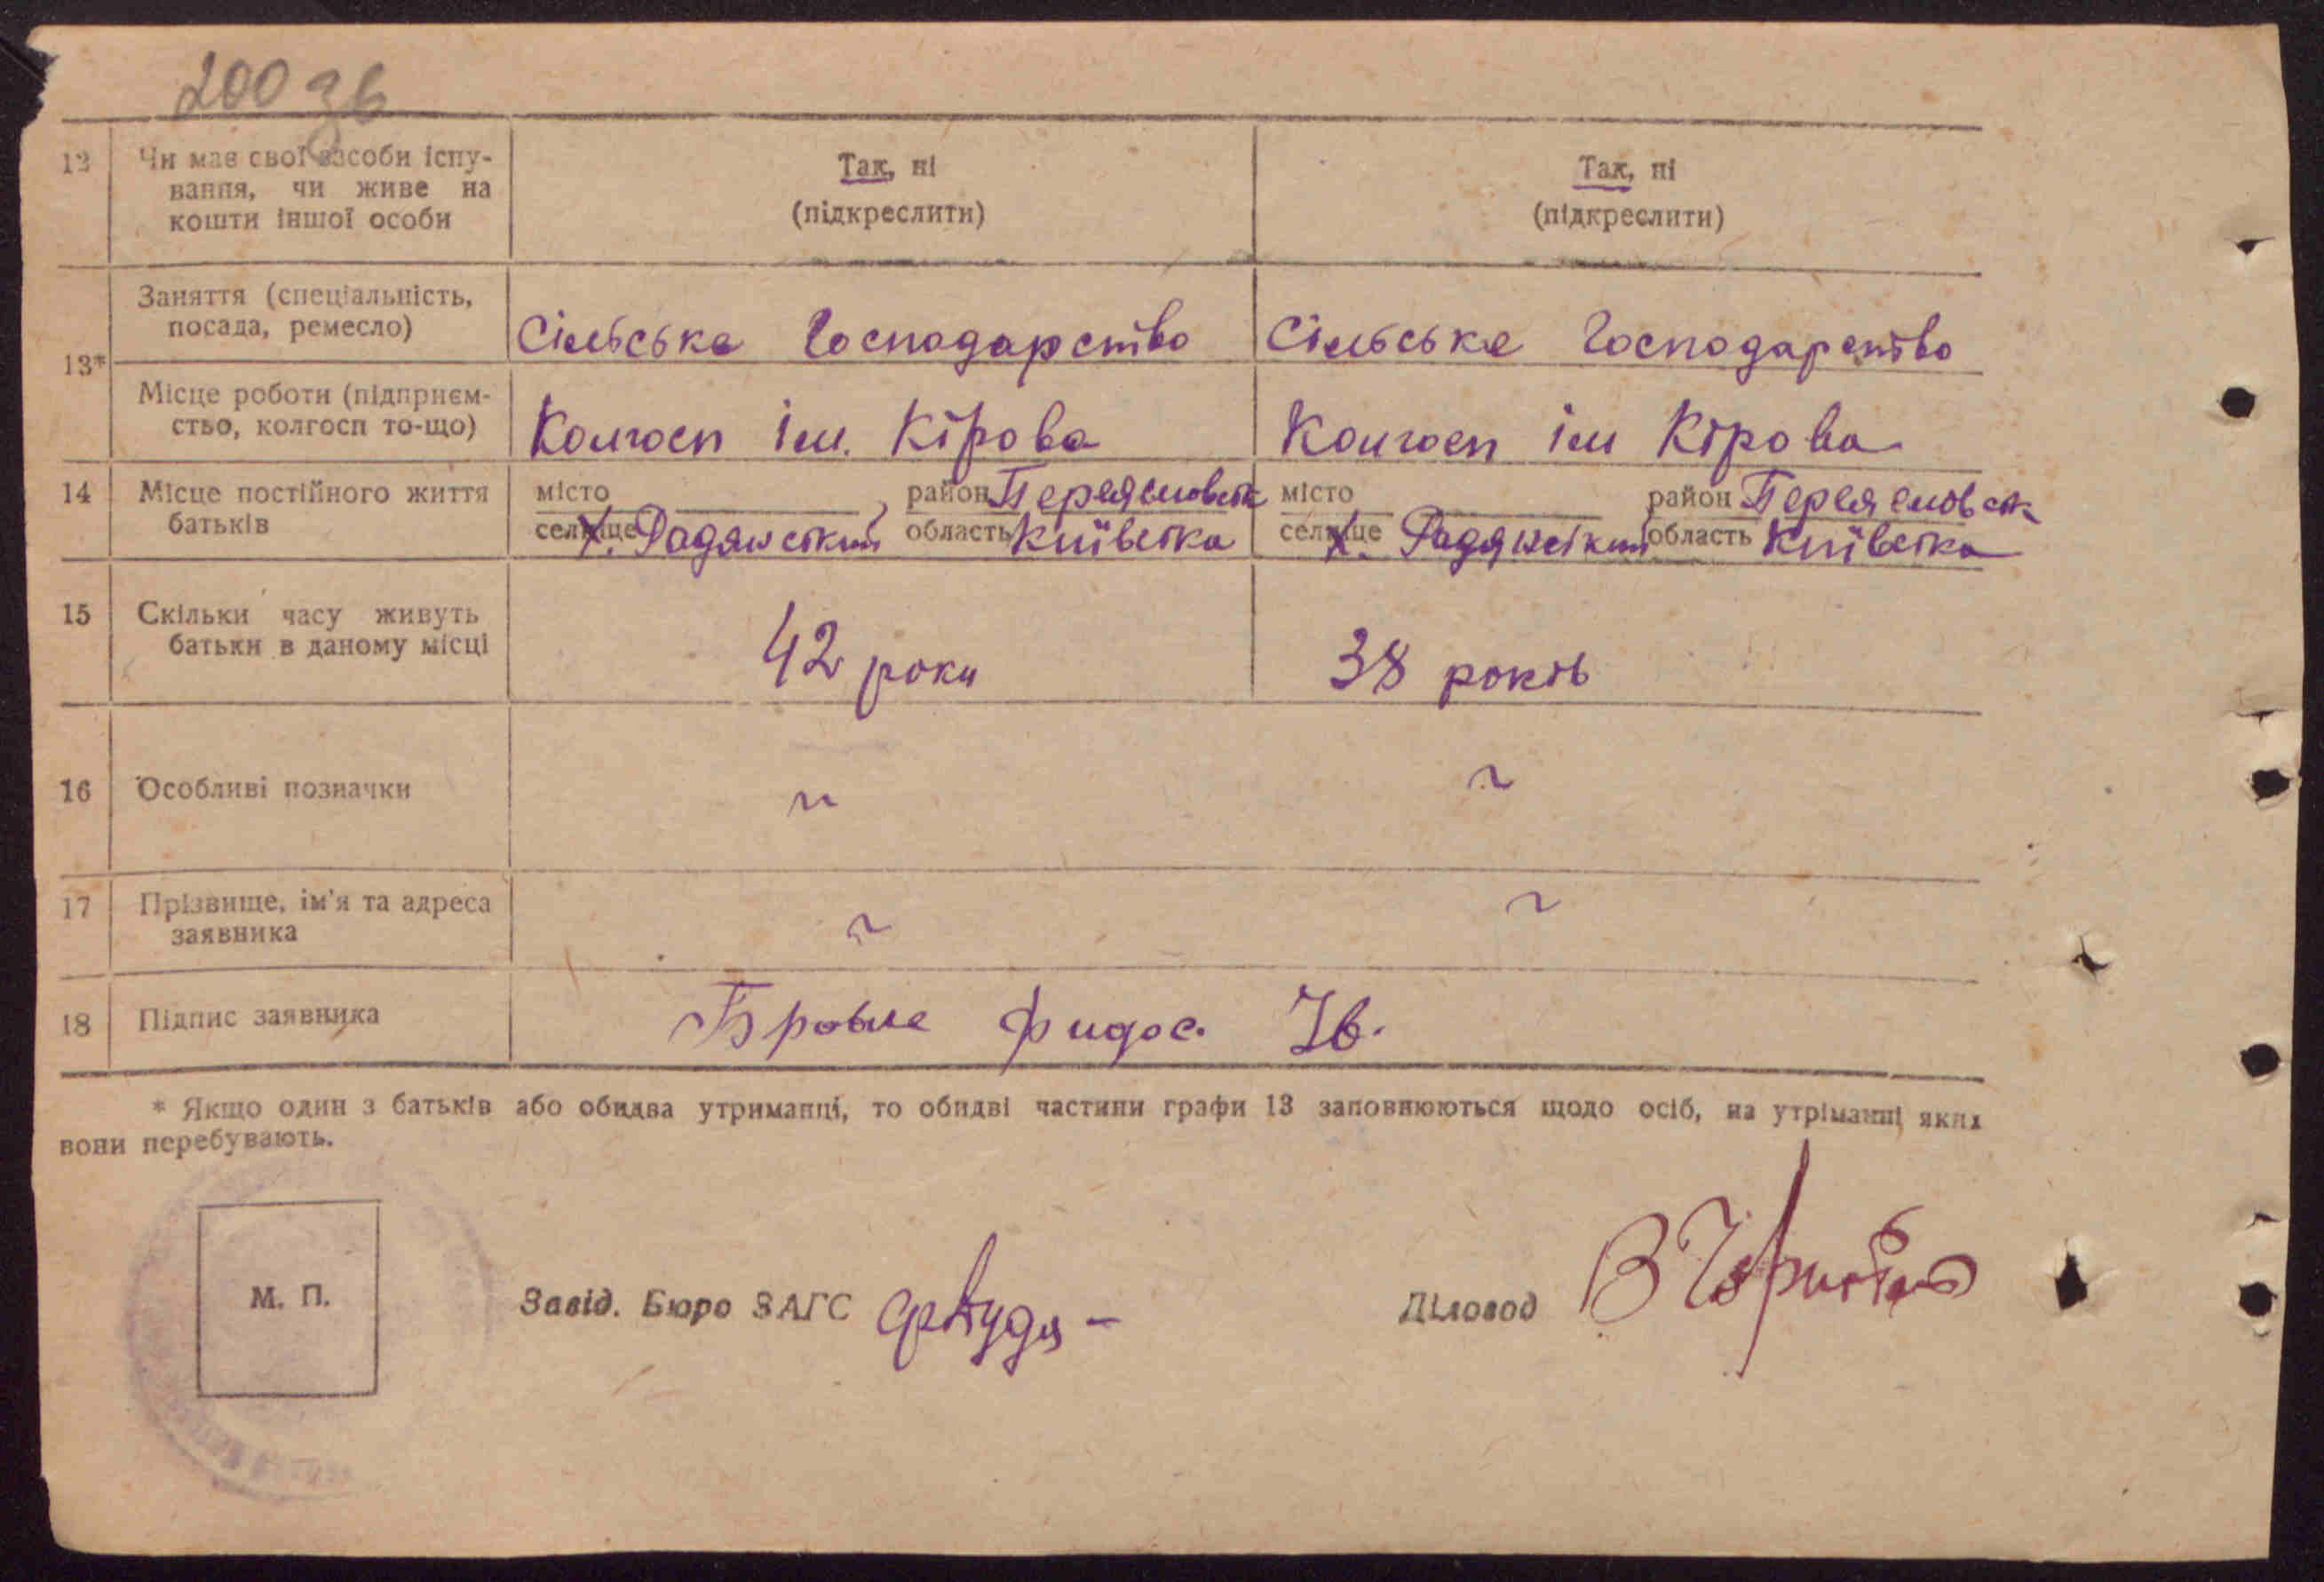 200 зв
12 Чи має свої засоби існу-
вання, чи живе на
кошти іншої особи
Так, ні
(підкреслити)
Так, ні
(підкреслити)
13*
Заняття (спеціальність,
посада, ремесло)
Сільське Господарство
Сільське Господарство
Місце роботи (підприєм-
ство, колгосп то-що)
Колгосп ім. Кірова
Колгосп ім Кірова
14 Місце постійного життя
батьків
місто район
селище х. Радянський область Київська
місто район
селище х. Радянський область Київська
15 Скільки часу живуть
батьки в даному місці
42 роки
38 років
16 Особливі позначки
~
~
17 Прізвище, ім'я та адреса
заявника
~
~
18 Підпис заявника
Бровче Фидос. Ів.
* Якщо один з батьків або обидва утриманці, то обидві частини графи 13 заповнюються щодо осіб, на утріманні яких
вони перебувають.
М. П.
Завід. Бюро ЗАГС
Діловод